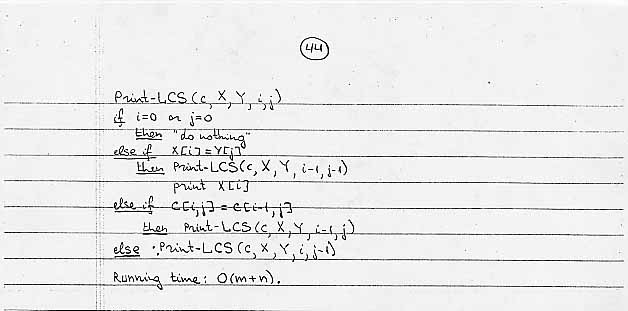 44
Print-LCS (c, X, Y, i, j)
if i=0 or j=0
then "do nothing"
else if X[i]=Y[j]
then Print-LCS(c, X, Y, i-1, j-1)
print X[i]
else if C[i,j] = c[i-1, j]
then Print-LCS (c, X, Y, i-1, j)
else Print-LCS (c, X, Y, i, j-1)
Running time: O(m+n).